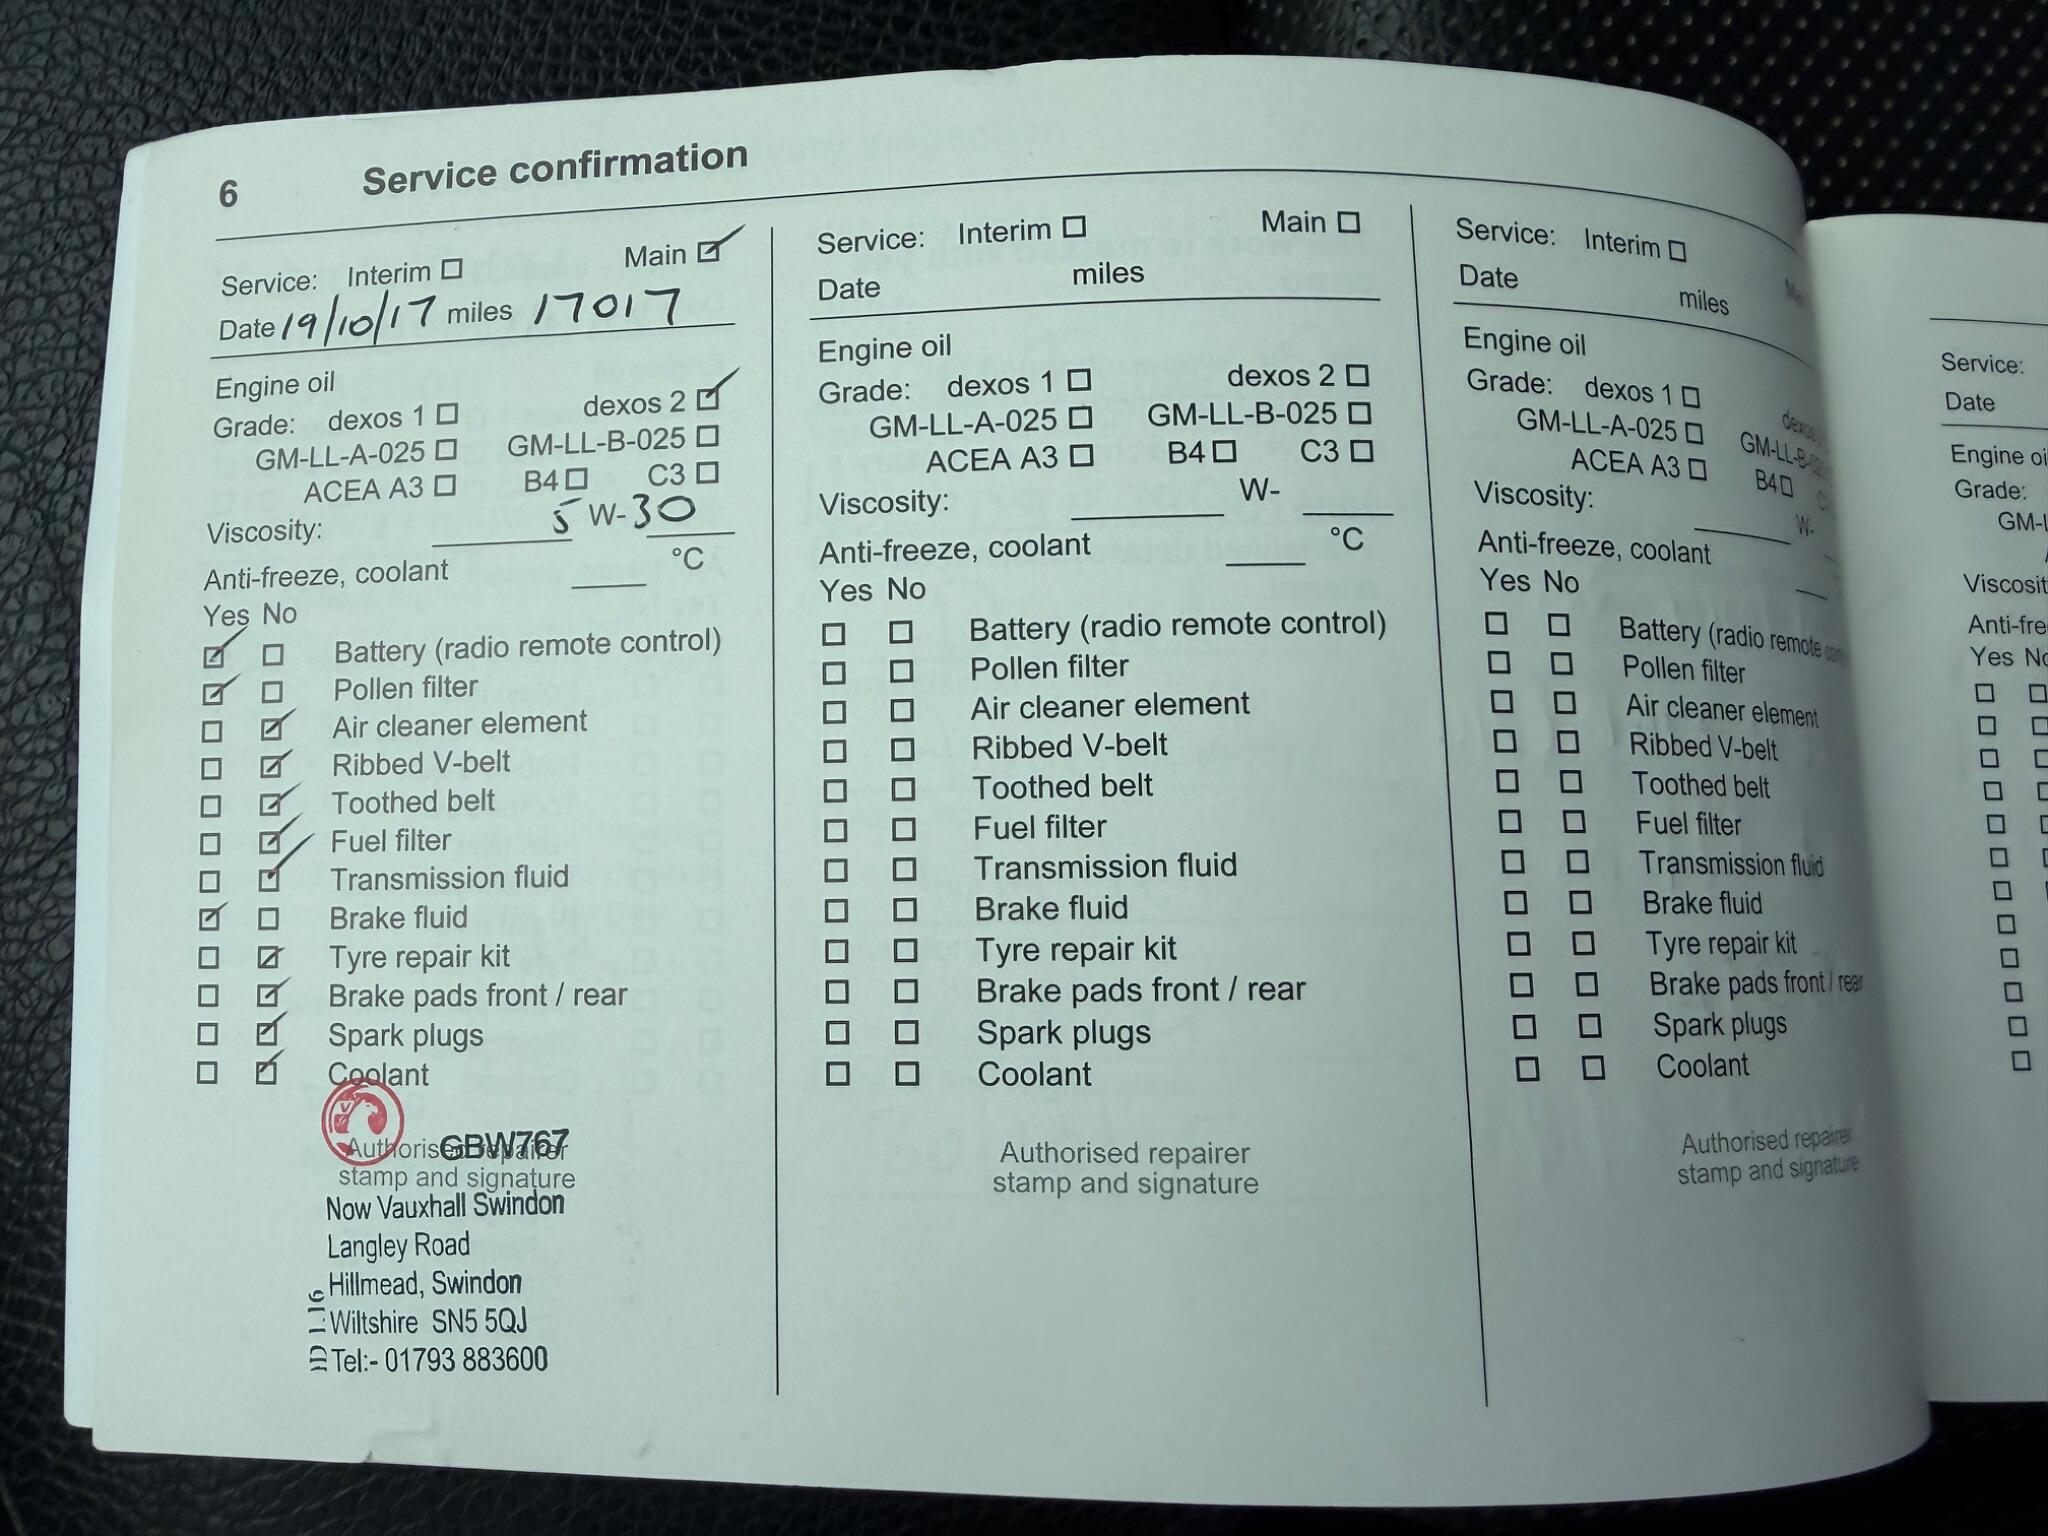 6 Service confirmation
Service: Interim ☐ Main ☑
Date 19/10/17 miles 17017
Engine oil
Grade: dexos 1 ☐ dexos 2 ☑
GM-LL-A-025 ☐ GM-LL-B-025 ☐
ACEA A3 ☐ B4 ☐ C3 ☐
Viscosity: 5 W-30
Anti-freeze, coolant ____ °C
Yes No
☑ ☐ Battery (radio remote control)
☑ ☐ Pollen filter
☐ ☑ Air cleaner element
☐ ☑ Ribbed V-belt
☐ ☑ Toothed belt
☐ ☑ Fuel filter
☐ ☑ Transmission fluid
☑ ☐ Brake fluid
☐ ☑ Tyre repair kit
☐ ☑ Brake pads front / rear
☐ ☑ Spark plugs
☐ ☑ Coolant
GBW767
Authorised repairer
stamp and signature
Now Vauxhall Swindon
Langley Road
Hillmead, Swindon
Wiltshire SN5 5QJ
Tel:- 01793 883600
Service: Interim ☐ Main ☐
Date miles
Engine oil
Grade: dexos 1 ☐ dexos 2 ☐
GM-LL-A-025 ☐ GM-LL-B-025 ☐
ACEA A3 ☐ B4 ☐ C3 ☐
Viscosity: ____ W- ____
Anti-freeze, coolant ____ °C
Yes No
☐ ☐ Battery (radio remote control)
☐ ☐ Pollen filter
☐ ☐ Air cleaner element
☐ ☐ Ribbed V-belt
☐ ☐ Toothed belt
☐ ☐ Fuel filter
☐ ☐ Transmission fluid
☐ ☐ Brake fluid
☐ ☐ Tyre repair kit
☐ ☐ Brake pads front / rear
☐ ☐ Spark plugs
☐ ☐ Coolant
Authorised repairer
stamp and signature
Service: Interim ☐
Date miles
Engine oil
Grade: dexos 1 ☐ dexos
GM-LL-A-025 ☐ GM-LL-B-025
ACEA A3 ☐ B4 ☐ C
Viscosity: ____ W-
Anti-freeze, coolant
Yes No
☐ ☐ Battery (radio remote
☐ ☐ Pollen filter
☐ ☐ Air cleaner element
☐ ☐ Ribbed V-belt
☐ ☐ Toothed belt
☐ ☐ Fuel filter
☐ ☐ Transmission fluid
☐ ☐ Brake fluid
☐ ☐ Tyre repair kit
☐ ☐ Brake pads front / rear
☐ ☐ Spark plugs
☐ ☐ Coolant
Authorised repairer
stamp and signature
Service:
Date
Engine oi
Grade:
GM-L
Viscosit
Anti-fre
Yes No